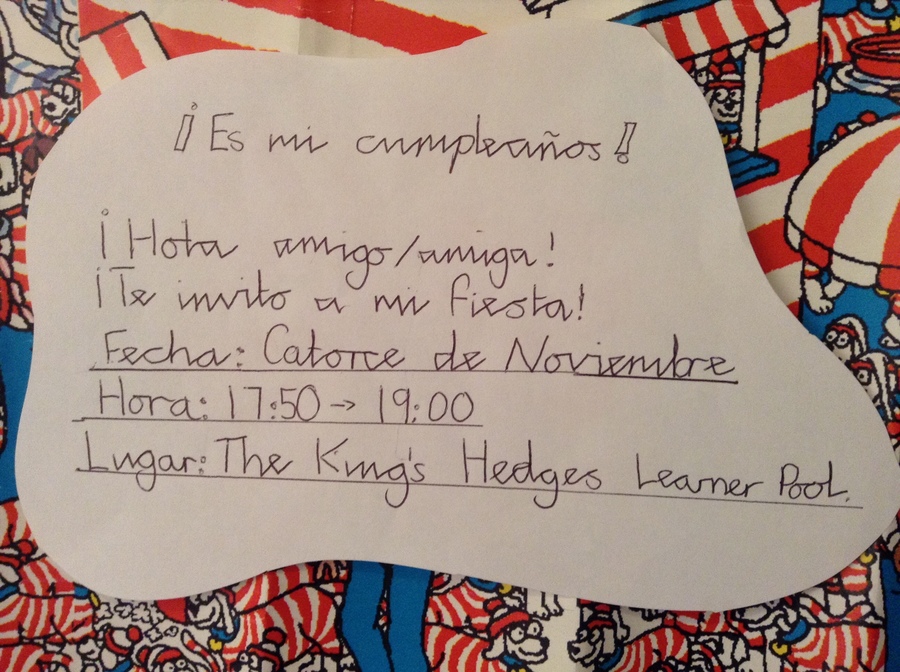 ¡Es mi cumpleaños!
¡Hola amigo/amiga!
¡Te invito a mi fiesta!
Fecha: Catorce de Noviembre
Hora: 17:50 → 19:00
Lugar: The King's Hedges Learner Pool.